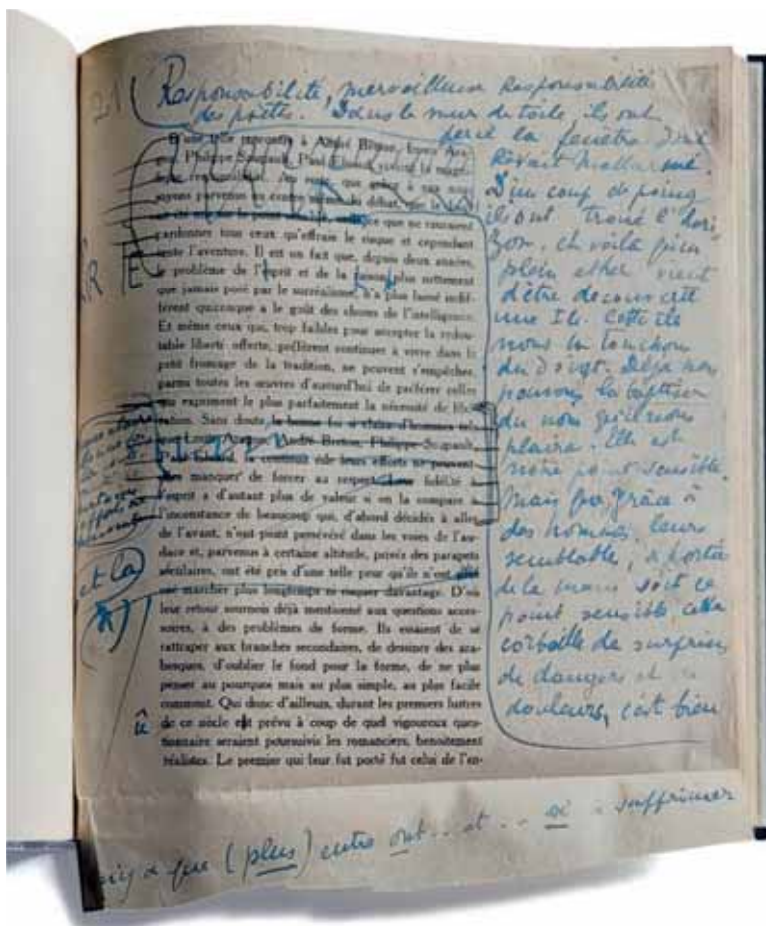 21
Responsabilité, merveilleuse Responsabilité
des poètes. Dans le mur de toile, ils ont
percé la fenêtre dont
rêvait Mallarmé.
D'un coup de poing
ils ont troué l'hori
zon. et voilà qu'en
plein éther vient
d'être découverte
une Ile. Cette île
nous la touchons
du doigt. Déjà nous
pouvons la baptiser
du nom qu'il nous
plaira. Elle est
notre point sensible.
Mais que grâce à
des hommes, leurs
semblables, à portée
de la main soit ce
point sensible, cette
corbeille de surprises
de dangers et
douleurs, c'est bien
D'une telle rencontre à André Breton, Louis Ara-
Philippe Soupault, Paul Eluard, revient le
que ne sauraient
pardonner tous ceux qu'effraie le risque et cependant
tente l'aventure. Il est un fait que, depuis deux années,
le problème de l'esprit et de la raison plus nettement
que jamais posé par le surréalisme, n'a plus laissé indif-
férent quiconque a le goût des choses de l'intelligence.
Et même ceux qui, trop faibles pour accepter la redou-
table liberté offerte, préfèrent continuer à vivre dans le
petit fromage de la tradition, ne peuvent s'empêcher
parmi toutes les œuvres d'aujourd'hui de préférer celles
qui expriment le plus parfaitement la nécessité de libé-
ration. Sans doute, la bonne foi si claire d'hommes tels
que Louis Aragon, André Breton, Philippe Soupault,
Paul Eluard, la continuité de leurs efforts ne peuvent
manquer de forcer au respect. Leur fidélité à
l'esprit a d'autant plus de valeur si on la compare à
l'inconstance de beaucoup qui, d'abord décidés à aller
de l'avant, n'ont point persévéré dans les voies de l'au-
dace et, parvenus à certaine altitude, privés des parapets
séculaires, ont été pris d'une telle peur qu'ils n'ont
osé marcher plus longtemps ni risquer davantage. D'où
leur retour sournois déjà mentionné aux questions acces-
soires, à des problèmes de forme. Ils essaient de se
rattraper aux branches secondaires, de dessiner des ara-
besques, d'oublier le fond pour la forme, de ne plus
penser au pourquoi mais au plus simple, au plus facile
comment. Qui donc d'ailleurs, durant les premiers lustres
de ce siècle eût prévu à coup de quel vigoureux ques-
tionnaire seraient poursuivis les romanciers, benoîtement
réalistes. Le premier qui leur fut porté fut celui de l'en-
E
et la
û
que (plus) entre ont .. et .. osé à supprimer